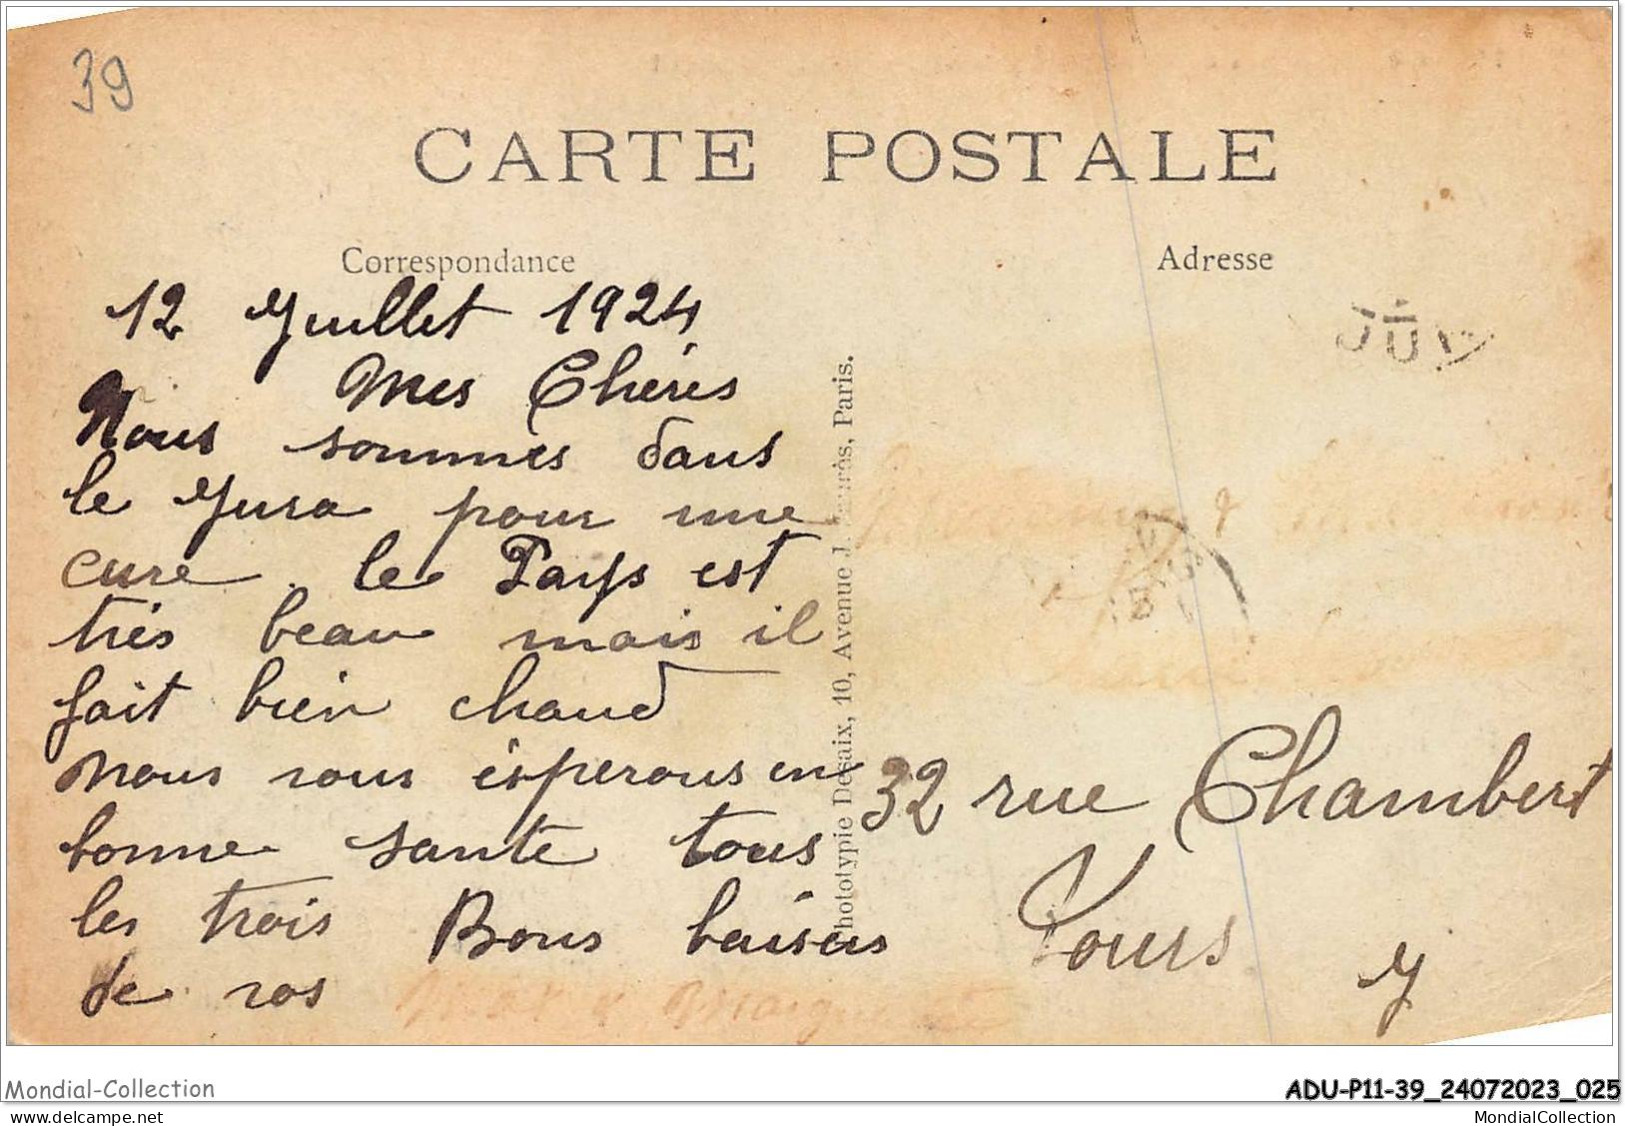 39
CARTE POSTALE
Correspondance
Adresse
12 Juillet 1924
Mes Chéris
Nous sommes dans
le Jura pour une
cure. le Pays est
très beau mais il
fait bien chaud
nous vous ésperons en
bonne santé tous
les trois Bons baisers
de vos
Phototypie Desaix, 10, Avenue J. Paris.
32 rue Chambert
Tours
Mondial-Collection
ADU-P11-39_24072023_025
www.delcampe.net
MondialCollection